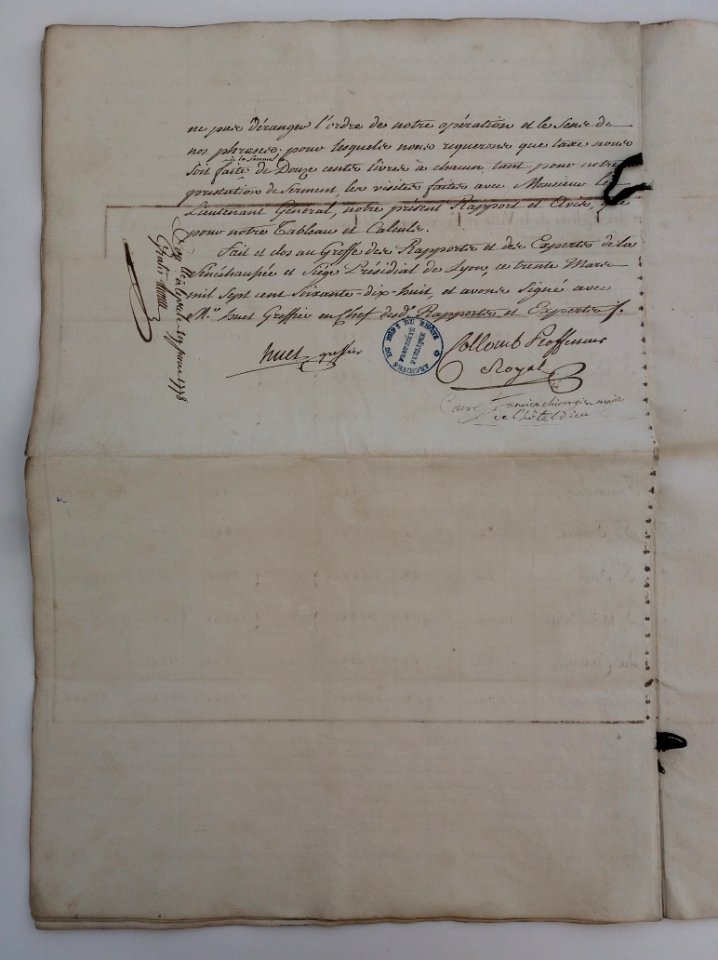 ne pas déranger l'ordre de notre opération et le sens de
nos phrases. pour lesquels nous requerons que taxe nous
à la somme
soit faite de Douze cents livres à chacun, tant pour notre
prestation de serment, les visites faites avec Monsieur le
Lieutenant Général, notre présent Rapport et Avis, que
pour notre Tableau et Calculs.
Fait et clos au Greffe des Rapports et des Experts de la
Sénéchaussée et Siège Présidial de Lyon, ce trente Mars
mil sept cent soixante-dix-huit, et avons signé avec
M.e huet Greffier en Chef des d.s Rapports et Experts
huet greffier
Collomb Professeur
Royal
ancien chirurgien major
de l'hôtel dieu
ARCHIVES DU DÉPT DU RHÔNE
PROPRIÉTÉ
PUBLIQUE
à Lyon le 17 1778
Gratis